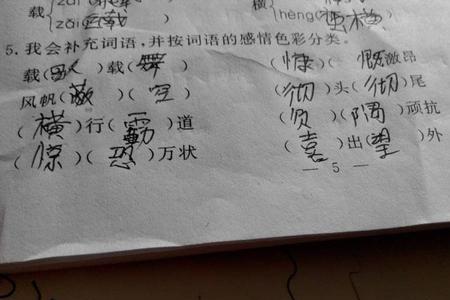 载{zǎi 载
横{hèng(蛮横)
5.我会补充词语,并按词语的感情色彩分类。
载(歌)载(舞) (慷)(慨)激昂
风帆(蔽)(空) (彻)头(彻)尾
(横)行(霸)道 (负)(隅)顽抗
(惊)(恐)万状 (喜)出(望)外
— 5 —